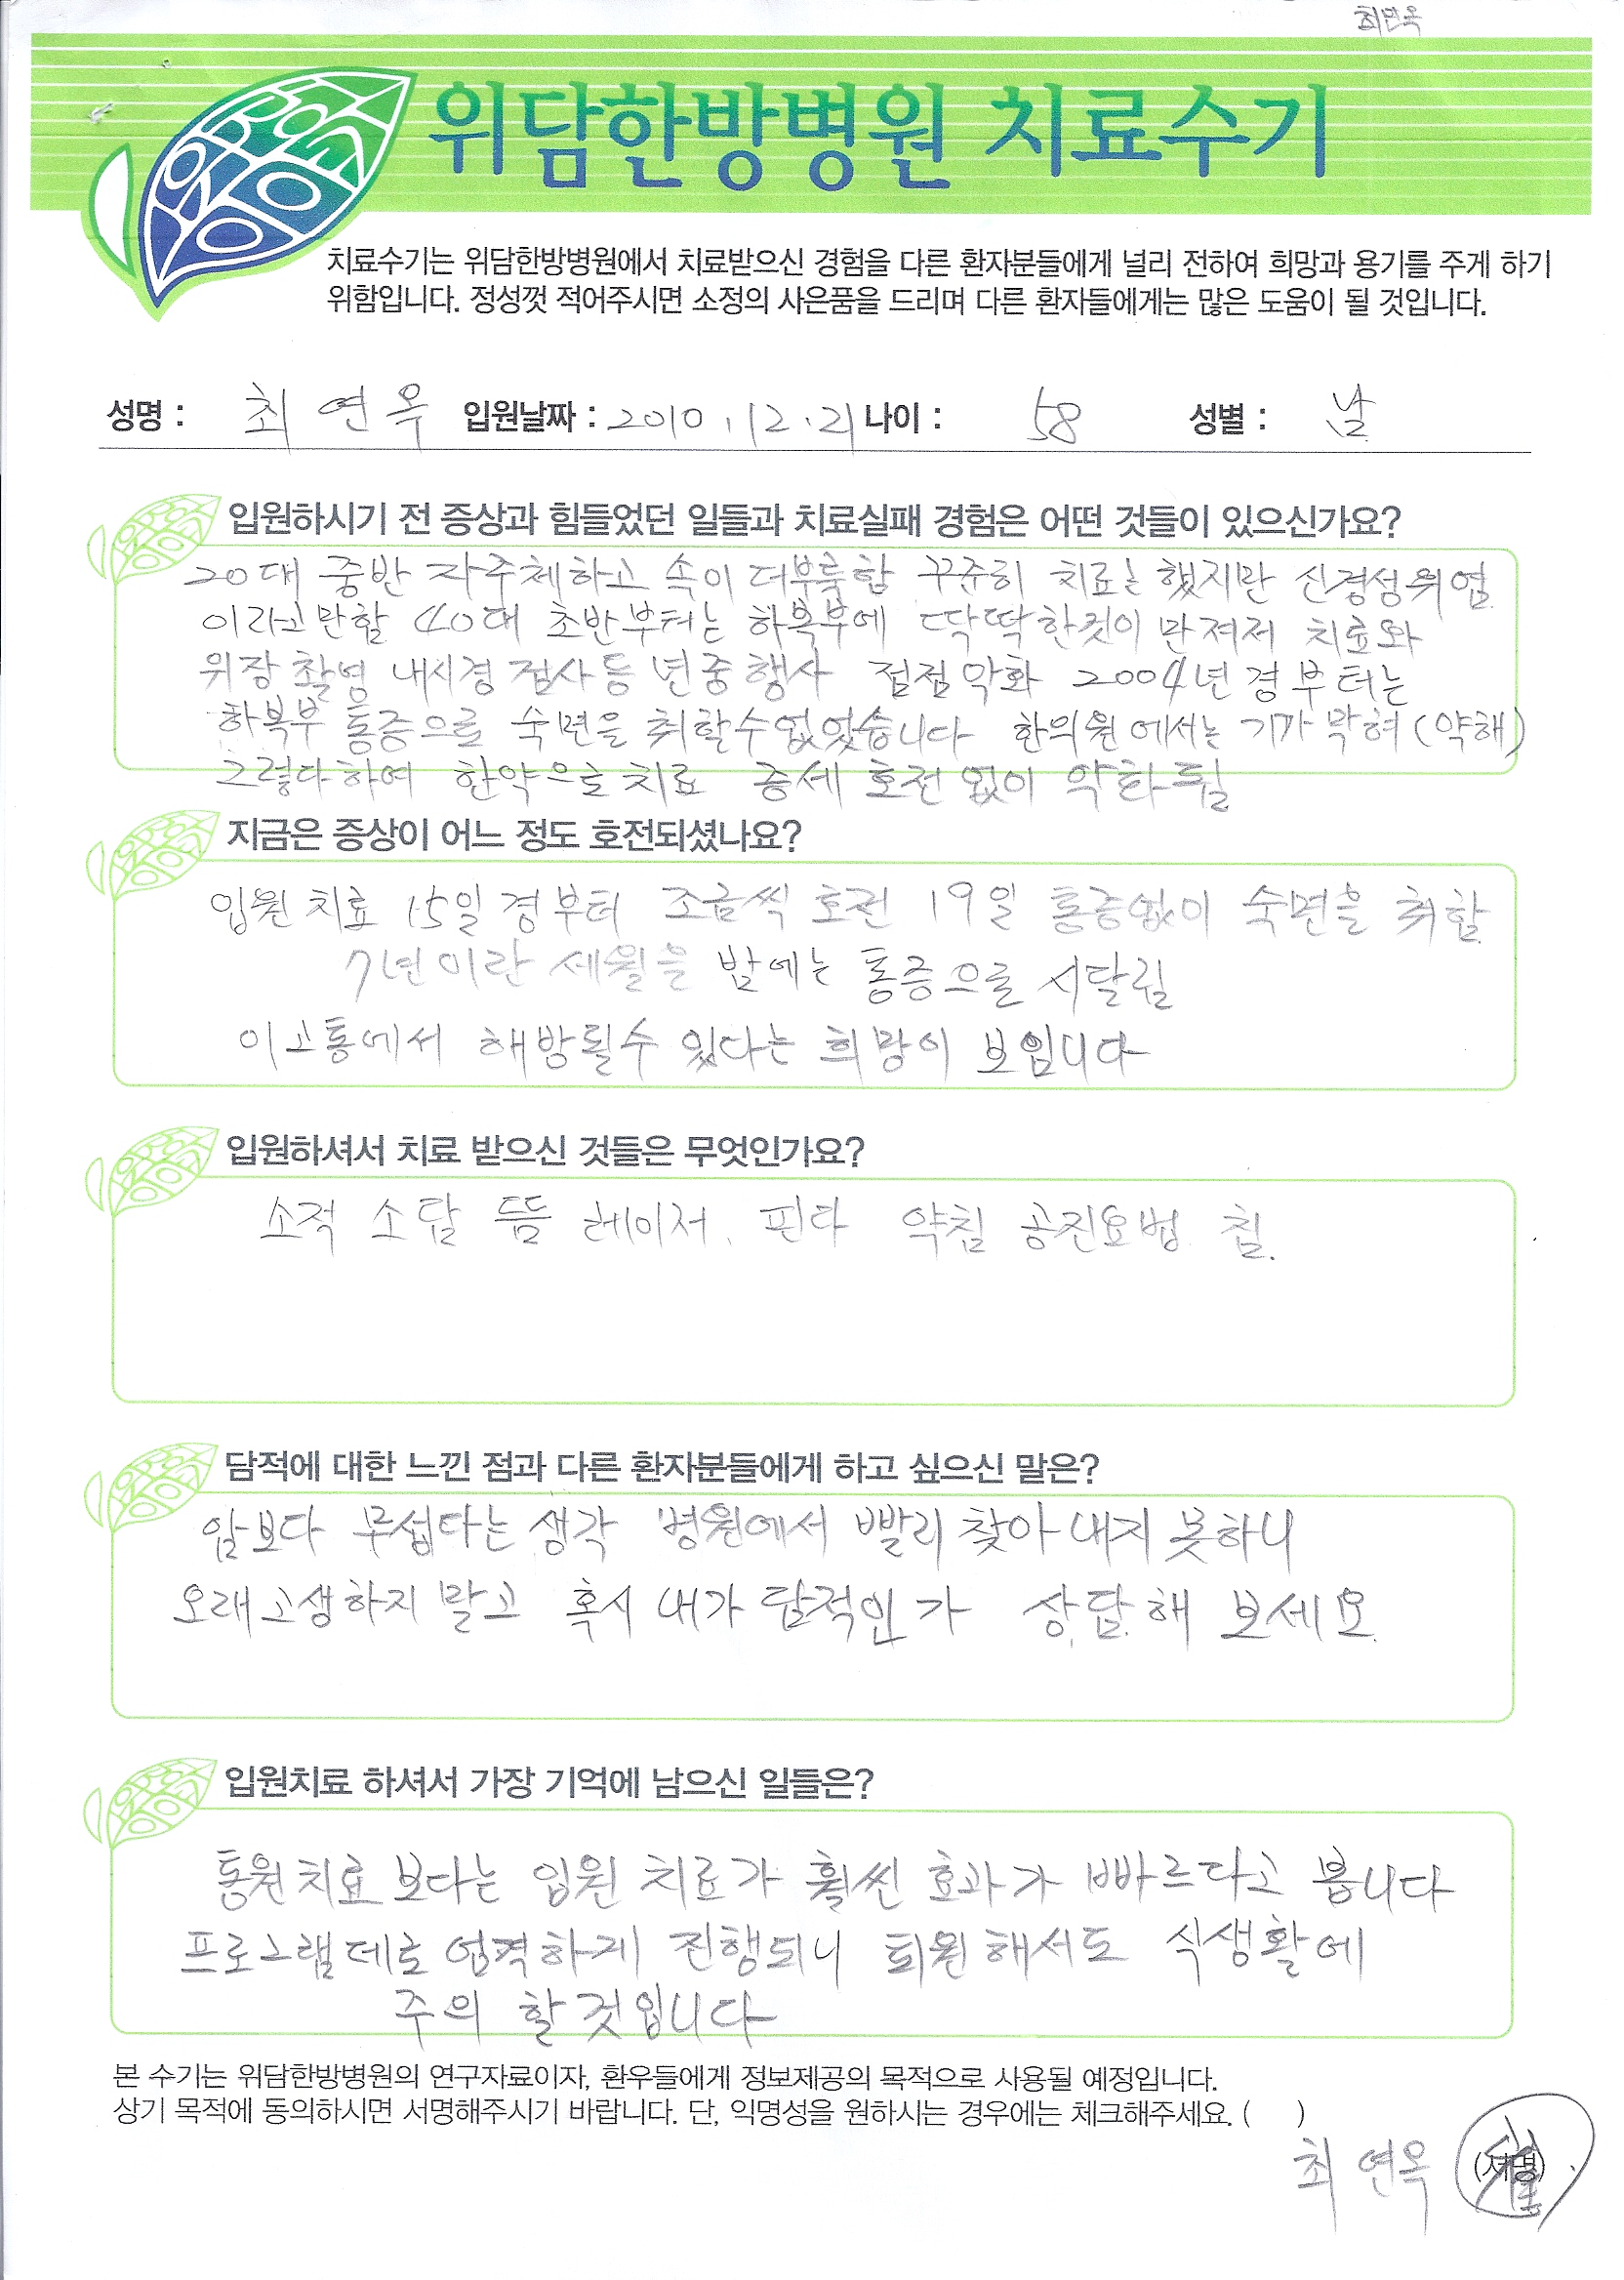 최연옥
위담한방병원 치료수기
치료수기는 위담한방병원에서 치료받으신 경험을 다른 환자분들에게 널리 전하여 희망과 용기를 주게 하기
위함입니다. 정성껏 적어주시면 소정의 사은품을 드리며 다른 환자들에게는 많은 도움이 될 것입니다.
성명 : 최 연 옥 입원날짜 : 2010. 12. 21 나이 : 58 성별 : 남
입원하시기 전 증상과 힘들었던 일들과 치료실패 경험은 어떤 것들이 있으신가요?
20대 중반 자주체하고 속이 더부룩함 꾸준히 치료는 했지만 신경성위염
이라고만함 40대 초반부터는 하복부에 딱딱한것이 만져저 치료와
위장촬영 내시경 검사등 년중행사 점점악화 2004년경부터는
하복부 통증으로 숙면을 취할수없었습니다 한의원에서는 기가 막혀(약해)
그렇다하여 한약으로치료 증세 호전없이 악화됨
지금은 증상이 어느 정도 호전되셨나요?
입원치료 15일경부터 조금씩 호전 19일 통증없이 숙면을 취함
7년이란 세월을 밤에는 통증으로 시달림
이고통에서 해방될수 있다는 희망이 보입니다
입원하셔서 치료 받으신 것들은 무엇인가요?
소적 소담 뜸 레이저. 핀다 약침 공진요법. 침.
담적에 대한 느낀 점과 다른 환자분들에게 하고 싶으신 말은?
암보다 무섭다는생각 병원에서 빨리찾아내지못하니
오래고생하지말고 혹시 내가 담적인가 상담해 보세요
입원치료 하셔서 가장 기억에 남으신 일들은?
통원치료보다는 입원 치료가 훨씬 효과가 빠르다고 봅니다
프로그램데로 엄격하게 진행되니 퇴원해서도 식생활에
주의 할것입니다
본 수기는 위담한방병원의 연구자료이자, 환우들에게 정보제공의 목적으로 사용될 예정입니다.
상기 목적에 동의하시면 서명해주시기 바랍니다. 단, 익명성을 원하시는 경우에는 체크해주세요. ( )
최 연옥 (서명)